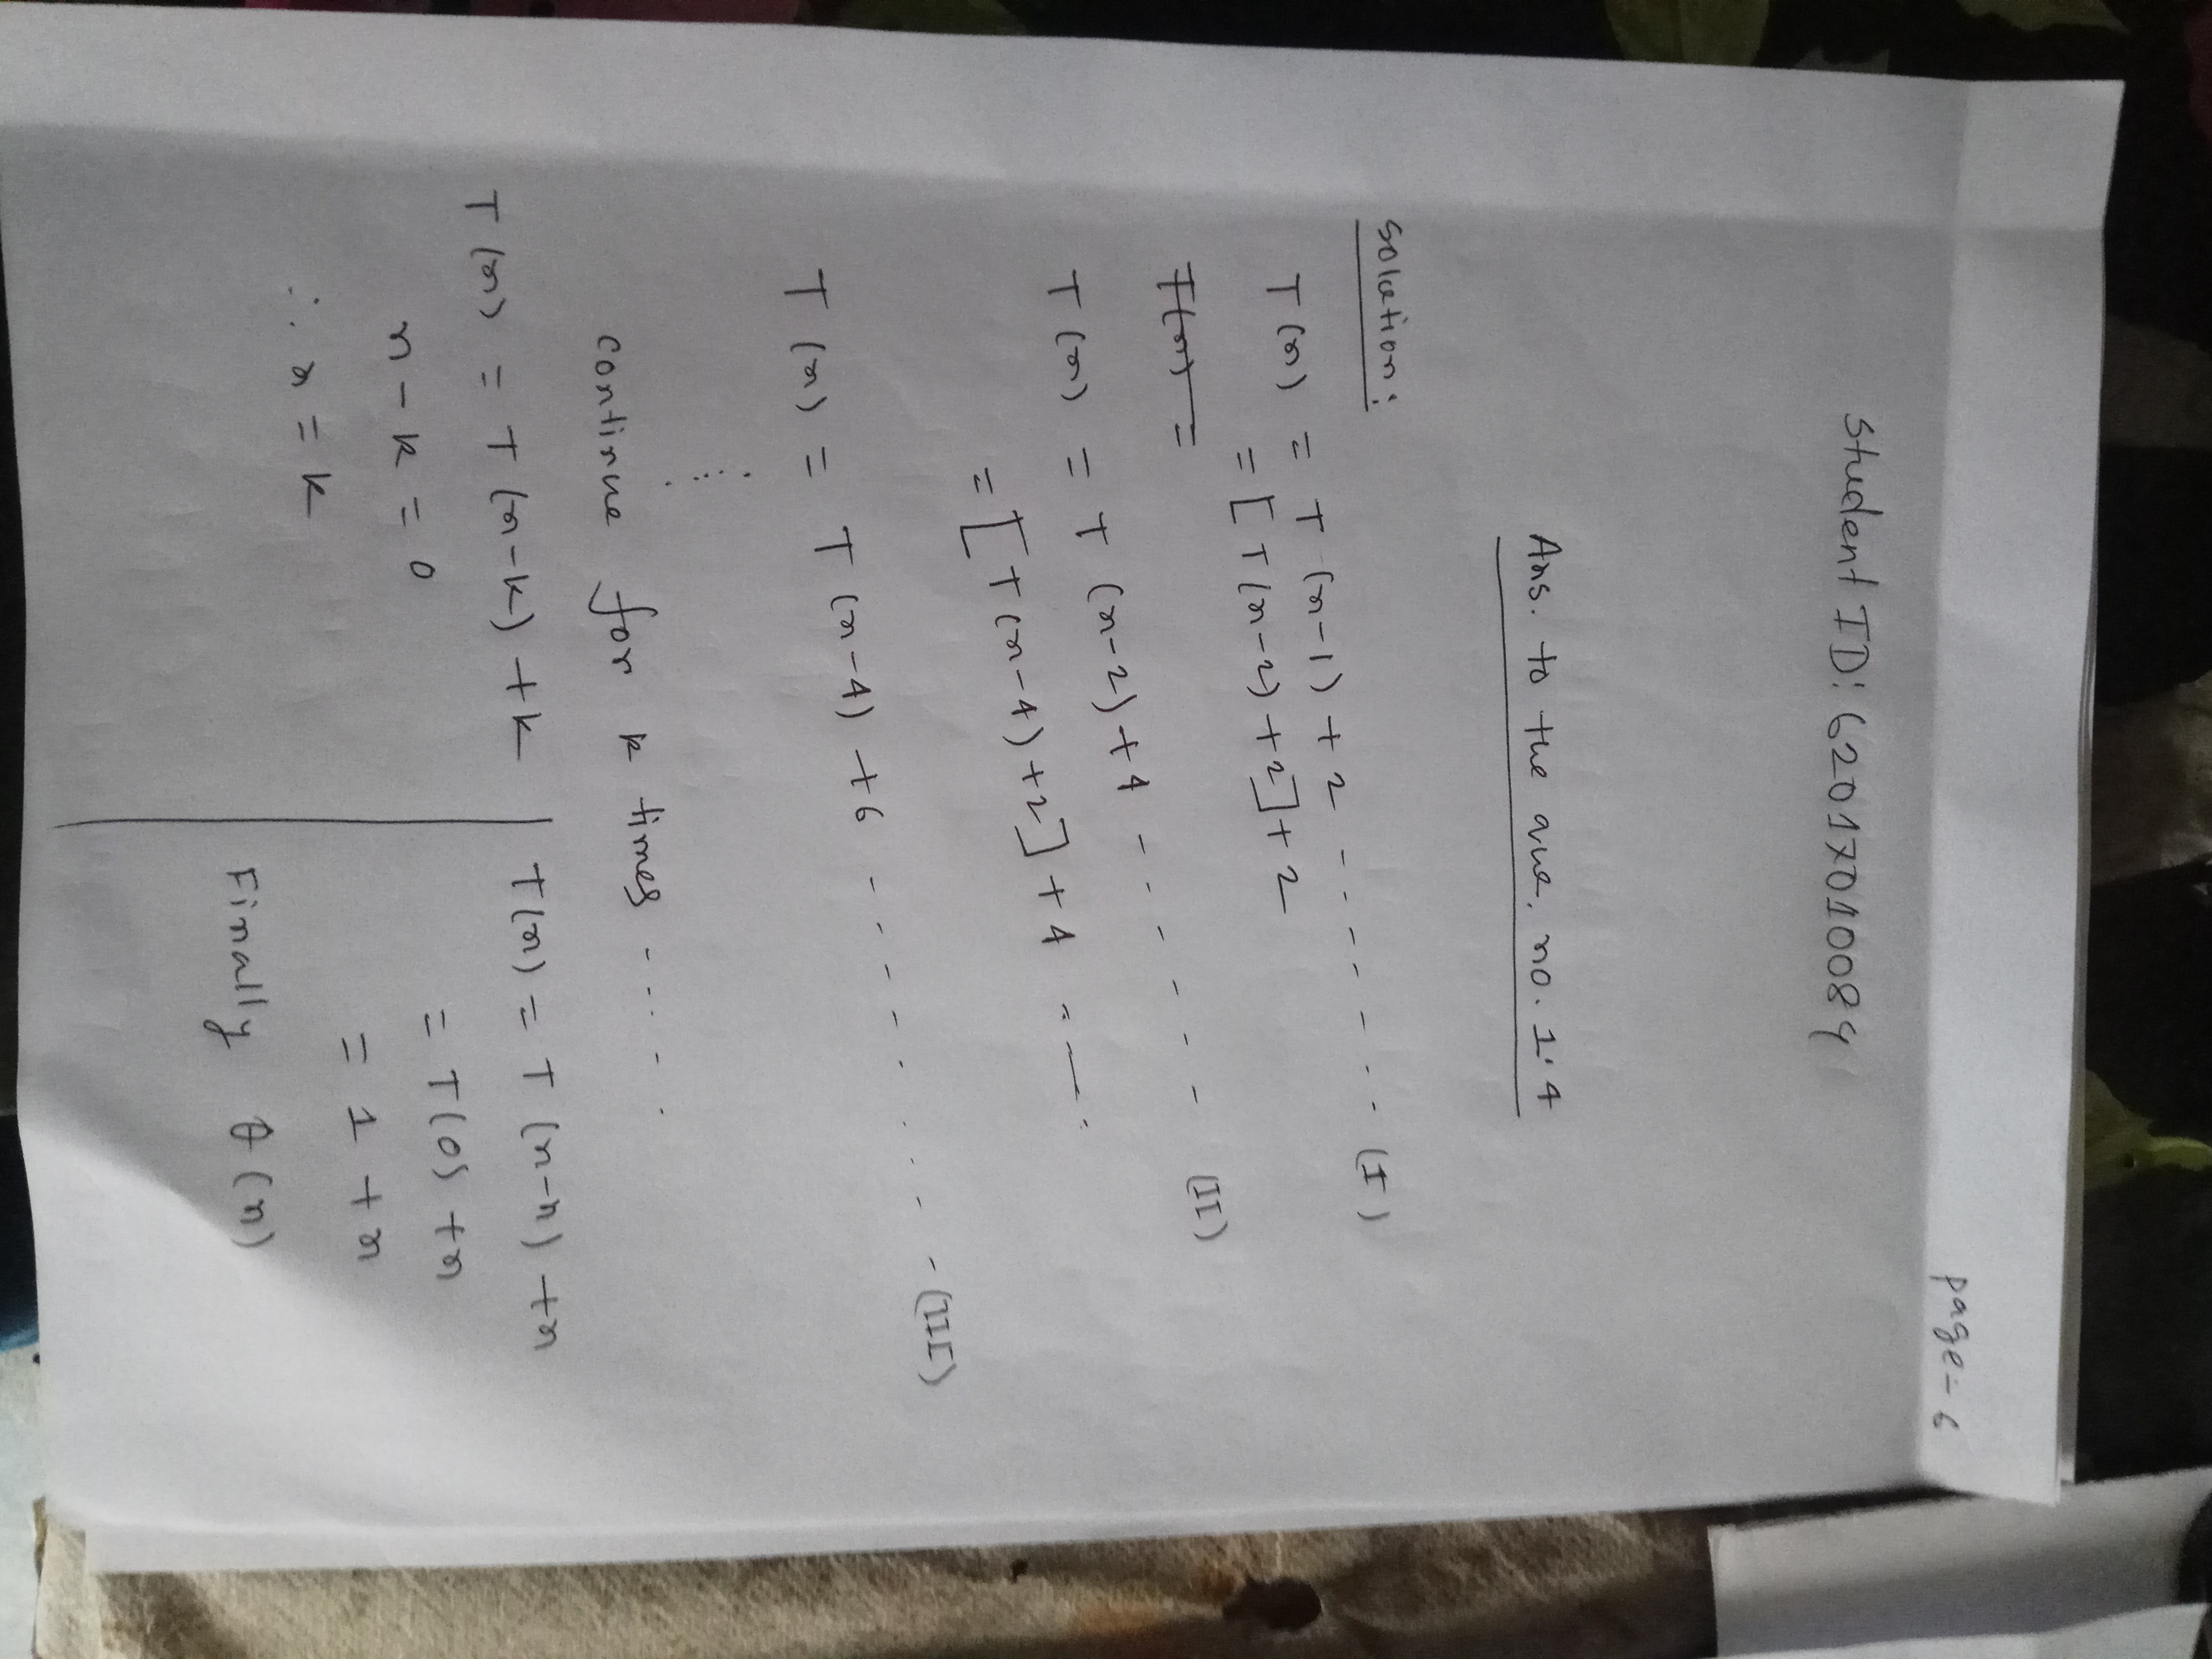 page-6
Student ID: 62017010084
Ans. to the que. no. 1.4
Solution:
T(n) = T(n-1) + 2 - - - - - - - (I)
= [T(n-2) + 2] + 2
T(n) =
T(n) = T(n-2) + 4 - - - - - - - (II)
= [T(n-4) + 2] + 4
T(n) = T(n-4) + 6 - - - - - - - (III)
continue for k times - - - -
T(n) = T(n-k) + k
n - k = 0
∴ n = k
T(n) = T(n-n) + n
= T(0) + n
= 1 + n
Finally θ(n)